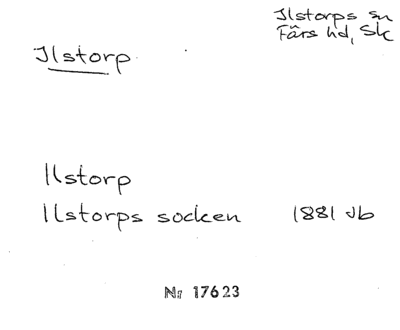 Ilstorps sn
Färs hd, Sk
Ilstorp
Ilstorp
Ilstorps socken 1881 Jb
Nr 17623